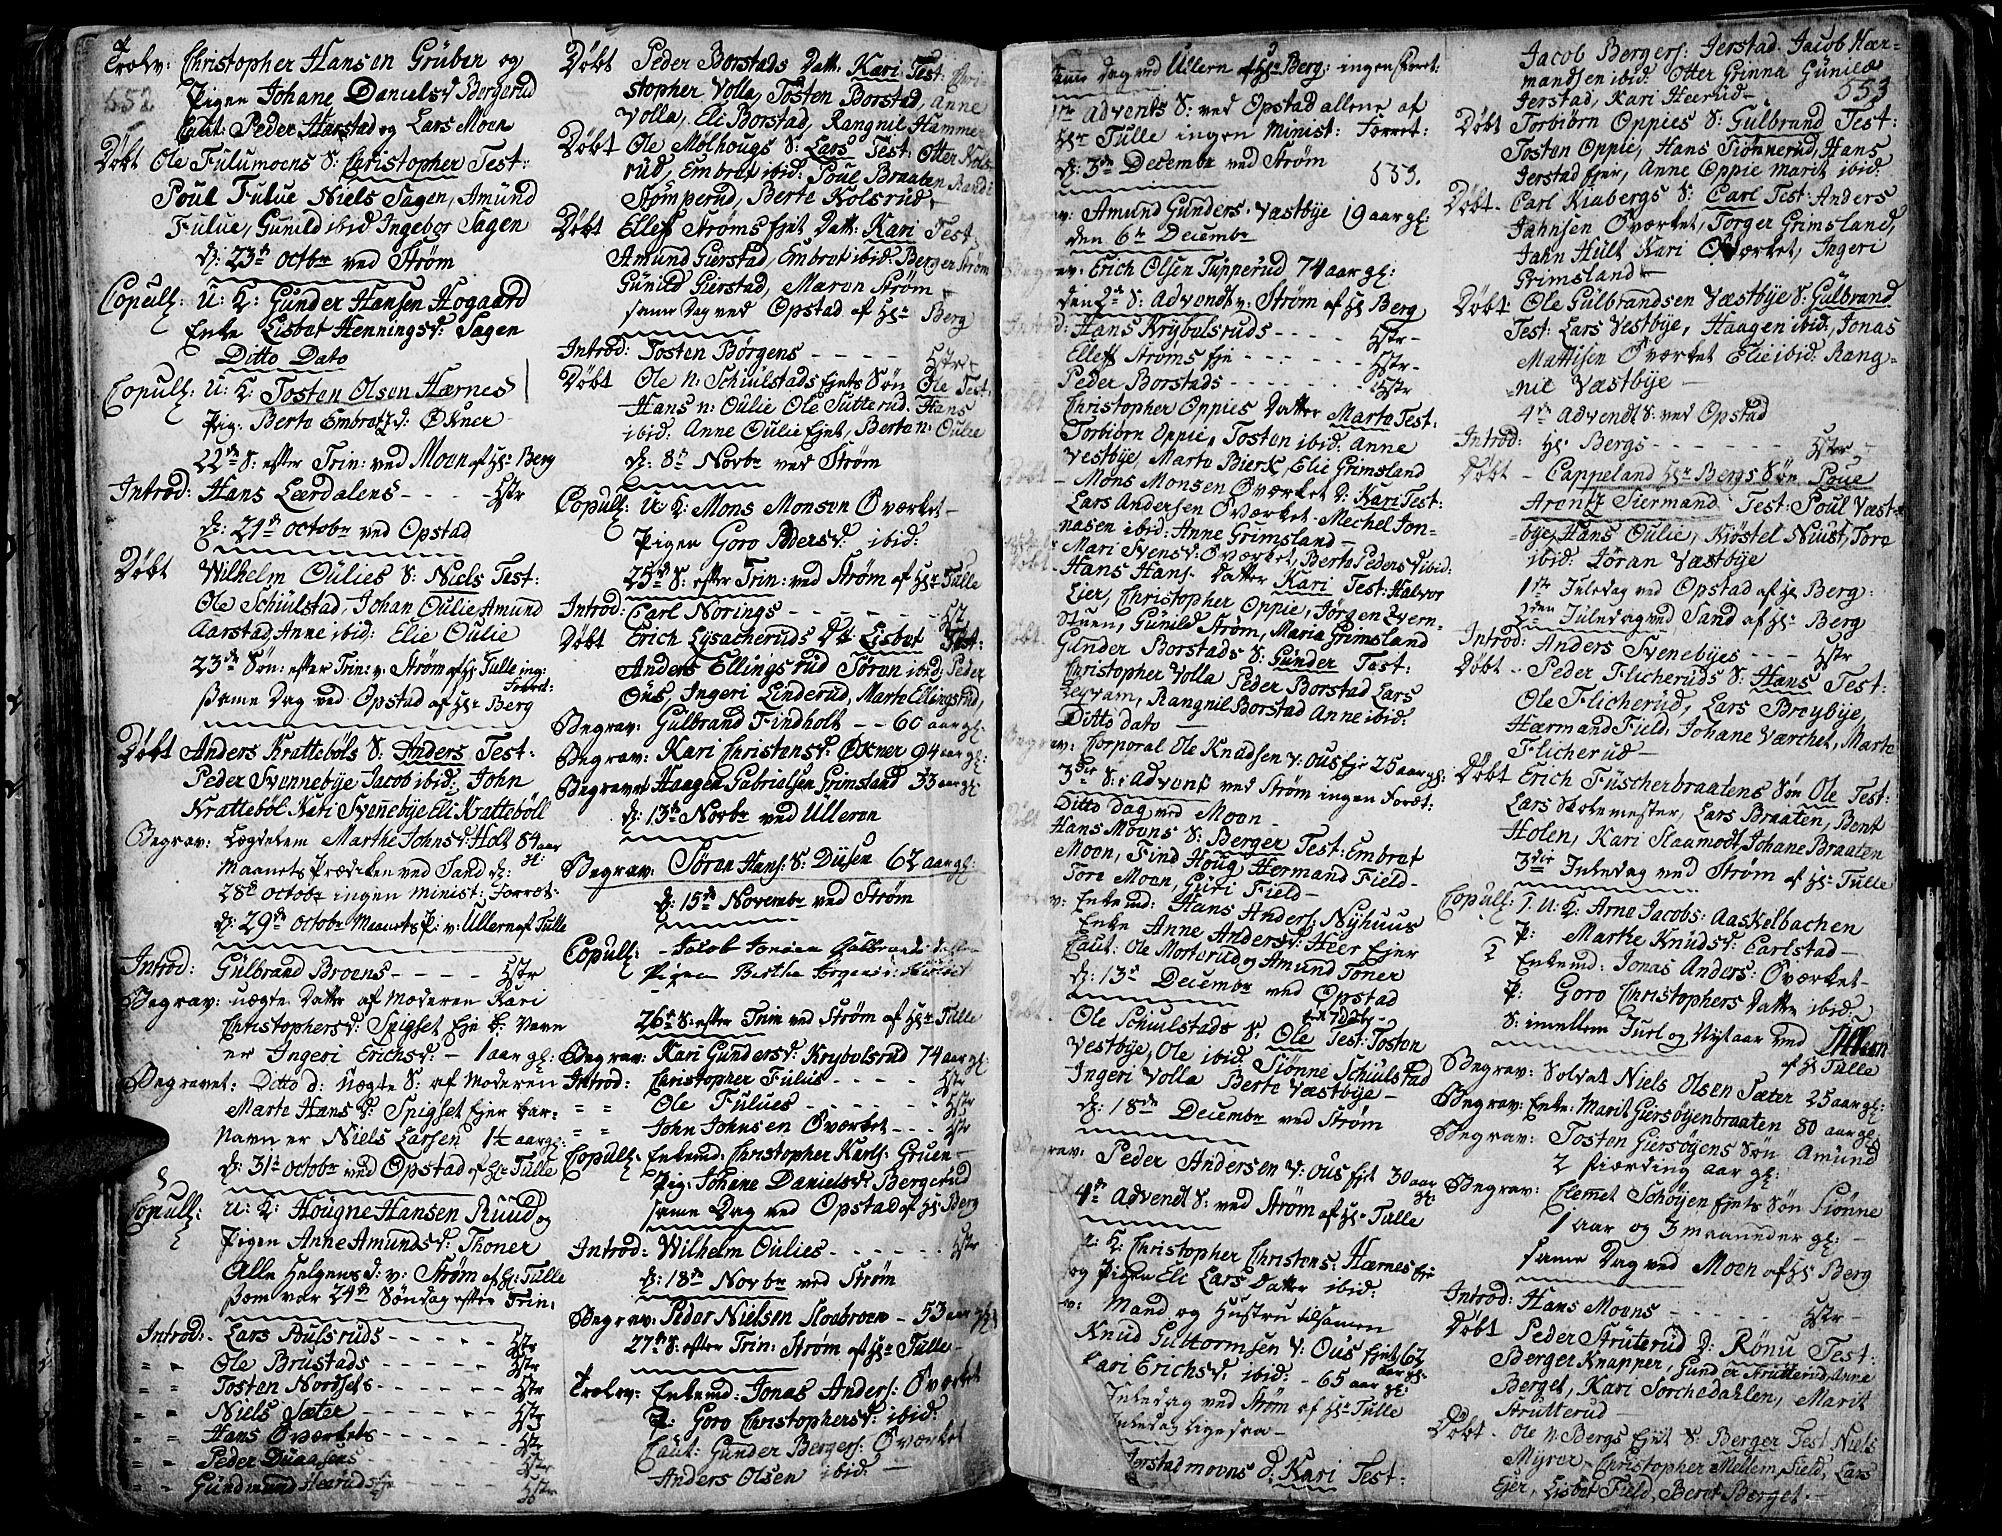 Trolov: Christopher Hansen Grüber og
552
Pigen Johane Danielsd Bergerud
Caut: Peder Harstad og Lars Moen
Døbt Ole Fulumoens S: Christopher Test:
Poul Fulue Niels Sagen, Amund
Fulue, Gunild ibid Ingebor Sagen
d: 23de octbr ved Strøm
Copull: U: K: Gunder Hansen Hogaard
Enke Lisbat Henningsd: Sagen
Ditto Dato
Copull: U: K: Tosten Olsen Hærnes
Pig: Berto Embretsd: Økner
22de S: efter Trin: ved Moen af Hr: Berg
Introd: Hans Lærdalens - - - - Hstr
d: 24de octobr ved Opstad
Døbt Wilhelm Oulies S: Niels Test:
Ole Schiulstad, Johan Oulie Amund
Aarstad, Anne ibid: Elie Oulie
23de Søn: efter Trin: v: Strøm af Hr Tulle ing:
Forret:
samme Dag ved Opstad af Hr Berg
Døbt Anders Krattebøls S: Anders Test:
Peder Svennebye Jacob ibid: John
Krattebøl Kari Svennebye Eli Krattebøll
Begrav: Lægdelem Marthe Johnsd: Holt 84 aar
gl:
Maanets Prædiken ved Sand d:
28de octobr ingen minist: Forret:
d: 29de octobr Maanets P: v: Ullern af Tulle
Introd: Gulbrand Broens - - - - Hstr
Begrav: uægte Datter af Moderen Kari
Christophersd: Spigset Eje b: Navn
er Ingeri Erichsd: - 1 aar gl:
Begravet: Ditto d: uægte S: af Moderen
Marte Hansd: Spigset Ejer bar-
navn er Niels Larsen 1¼ aar gl:
d: 31te octobr ved Opstad af Hr Tulle
Copull: U: K: Hougne Hansen Ruud og
Pigen Anne Amundsd: Thoner
Alle Helgens d: v: Strøm af Hr: Tulle
som var 24de Søndag efter Trin:
Introd: Lars Poulsruds - - - - Hstr
" " Ole Brustads - - - - - Hstr
" " Tosten Nordsets - - - - - Hstr
" " Niels Sæter - - - - - Hstr
" " Hans Oværkets - - - - - Hstr
" " Peder Duaasens - - - - - Hstr
" " Gundmund Heeruds Eje - - - - Hstr
Døbt Peder Borstads Datt: Kari Test: Chri-
stopher Volla, Tosten Borstad, Anne
Volla, Eli Borstad, Rangnil Hamme-
Døbt Ole Mølhougs S: Lars Test: Otter Kols-
rud, Embret ibid: Poul Braaten Randi
Stømperud, Berte Kolsrud
Døbt Ellefs Strøms Ejet Datt: Kari Test:
Amund Gierstad, Embret ibid: Berger Strøm
Gunild Gierstad, Maren Strøm
samme Dag ved Opstad af Hr Berg
Introd: Tosten Børgens - - - - - Hstr
Døbt Ole n: Schiulstads Ejets Søn Ole Test:
Hans n: Oulie Ole Sutterud. Hans
ibid: Anne Oulie Ejet, Berte n: Oulie
d: 8de Novbr ved Strøm
Copull: U: K: Mons Monsen Oværket
Pigen Goro Pedersd: ibid:
25de S: efter Trin: ved Strøm af Hr Tulle
Introd: Carl Norings - - - - - Hstr
Døbt Erich Lysacheruds D: Lisbet Test:
Anders Ellingsrud Søren ibid: Peder
Ous, Ingeri Linderud, Marte Ellingsrud,
Begrav: Gulbrand Findholt - - 60 aar gl:
Begrav: Kari Christensd: Økner 94 aar gl:
Begravet Haagen Gabrielsen Grimsland 33 aar gl:
d: 13de Novbr ved Ulleren
Begrav: Søren Hans: S: Diisen 62 aar gl:
d: 15de Novembr ved Strøm
Copull: Jacob
Pigen Berthe
26de S: efter Trin ved Strøm af Hr Tulle
Begrav: Kari Gundersd: Krybolsrud 74 aar gl:
Introd: Christopher Fulus - - - - Hstr
" " Ole Fulues - - - - - Hstr
" " John Johnsen Oværket - - - Hstr
Copull: Enkemd: Christopher Karls: Gruen
Pig: Johane Danielsd: Bergerud
samme Dag ved Opstad af Hr: Berg
Introd: Wilhelm Oulies - - - - - Hstr
d: 18de Novbr ved Strøm
Begrav: Peder Nielsen Slaabroen - 53 aar gl:
27de S: efter Trin: Strøm af Hr: Tulle
Trolov: Enkemd: Jonas Anders: Oværket
P: Goro Christophersd: ibid:
Caut: Gunder Bergers: Oværket
Anders Olsen ibid:
samme dag ved Ullern af Hr Berg: ingen forret:
1te Advents S: ved Opstad allene af
Hr Tulle ingen Minist: Forret:
d: 3de Decembr ved Strøm
553.
Begrav: Amund Gunders: Væstbye 19 aar gl:
den 6te Decembr
Begrav: Erich Olsen Tupperud 74 aar gl:
den 2de S: Advendt v: Strøm af Hr Berg
Introd: Hans Krybolsruds - - - - Hstr
Ellefs Strøms Eje - - - - Hstr
Peder Borstads - - - - - Hstr
Christopher Oppies Datter Marte Test:
Torbiørn Oppie, Tosten ibid: Anne
Vestbye, Marte Bierk, Elie Grimsland
Døbt Mons Monsen Oværket D: Kari Test:
Lars Andersen Oværket. Mechel Jon-
nasen ibid: Anne Grimsland
Mari Svensd: Oværket, Berte Pedersd ibid:
Døbt Hans Hans: Datter Kari Test: Halvor
Ejer, Christopher Oppie, Jørgen Qvern-
stuen, Gunild Strøm, Maria Grimsland
Gunder Borstads S: Gunder Test:
Christopher Volla Peder Borstad Lars
Rangnil Borstad Anne ibid:
Ditto dato
Begrav: Corporal Ole Knudsen v: Ous Eje 25 aar gl:
3die S: Advent ved Strøm ingen Foret:
Ditto dag ved Moen
Hans Moens S: Berger Test: Embret
Moen, Find Houg, Hermand Field
Tore Moen, Guri Field
Enkemd: Hans Anders: Nyhuus
Enke Anne Andersd: Heer Ejer
Caut: Ole Morterud og Amund Toner
d: 13de Decembr ved Opstad
Ole Schiulstads S: Ole Test: Tosten
Vestbye, Ole ibid Siønne Schiulstad
Ingeri Volla Berte Væstbye
d: 18de Decembr ved Strøm
Begrav: Peder Andersen v: Ous Ejet 30 aar
gl:
4de Advendt S: ved Strøm af Hr Tulle
U: K: Christopher Christens: Hærnes Eje
og Pigen Eli Lars Datter ibid:
Mand og Hustru tilsamen
Knud Guttormsen v: Ous Ejet 62
aar gl:
Kari Erichsd: ibid: - 65 aar gl:
Juledag ved Strøm af Hr Tulle
Juledag ligesaa
Jerstadmoens d: Kari Test:
Jacob Bergers: Jerstad Jacob Hær-
mandsen ibid Otter Grinna Gunild
Jerstad, Kari Heerud
553
Døbt Torbiørn Oppies S: Gulbrand Test:
Tosten Oppie, Hans Siønnerud, Hans
Jerstad Ejer, Anne Oppie Marit ibid:
Døbt Carl Kiabergs S: Carl Test: Anders
Jahnsen Oværket, Torger Grimsland,
Jahn Hult Kari Oværket, Ingeri
Grimsland
Døbt Ole Gulbrandsen Væstbye S: Gulbrand
Test: Lars Vestbye, Haagen ibid: Jonas
Mattisen Oværket Elie ibid: Rang-
nil Væstbye
4de Advendt S: ved Opstad
Introd: Hr: Bergs - - - - Hstr
Døbt - Cappeland Hr Bergs Søn Poul
Arentz Siermand Test: Poul Væst-
bye, Hans Oulie, Kjøstel Nuust, Tore
ibid: Jøran Væstbye
1ste Juledag ved Opstad af Hr Berg:
2den Juledag ved Sand af Hr Berg
Introd: Anders Svenebyes - - - Hstr
Døbt - Peder Flicheruds S: Hans Test:
Ole Flicherud, Lars Breybye,
Hærmand Field, Johane Værchet, Marte
Flicherud
Døbt Erich Fuscherbraatens Søn Ole Test:
Lars Skolemester, Lars Braaten, Bent
Holen, Kari Slaamodt, Johane Braaten
3die Juledag ved Strøm af Hr Tulle
Copull: 1. U: K: Arne Jacobs: Aaskelbachen
P: Marthe Knudsd: Carlstad
2 Enkemd: Jonas Anders: Oværket
P: Goro Christophers Datter ibid:
S: imellem Juel og Nytaar ved Ullern
af Hr Tulle
Begrav: Soldat Niels Olsen Sæter 25 aar gl:
Begrav: Enke: Marit Giersøyenbraaten 80 aar gl:
Begrav: Tosten Giersøyens Søn Amund
2 fiærding aar gl:
Begrav: Clemet Schøyen Ejets Søn Siønne
1 aar og 3 maaneder gl:
samme Dag ved Moen af Hr Berg
Introd: Hans Moens - - - - - Hstr
Døbt Peder Strutterud D: Rønu Test:
Berger Knapper, Gunder Strutterud, Anne
Berget, Kari Sorchedahlen, Marit
Strutterud
Døbt - Ole n: Bergs Ejet S: Berger Test: Niels
Myrer, Christopher Mellem Field, Lars
Ejer, Lisbet Field, Beret Berget